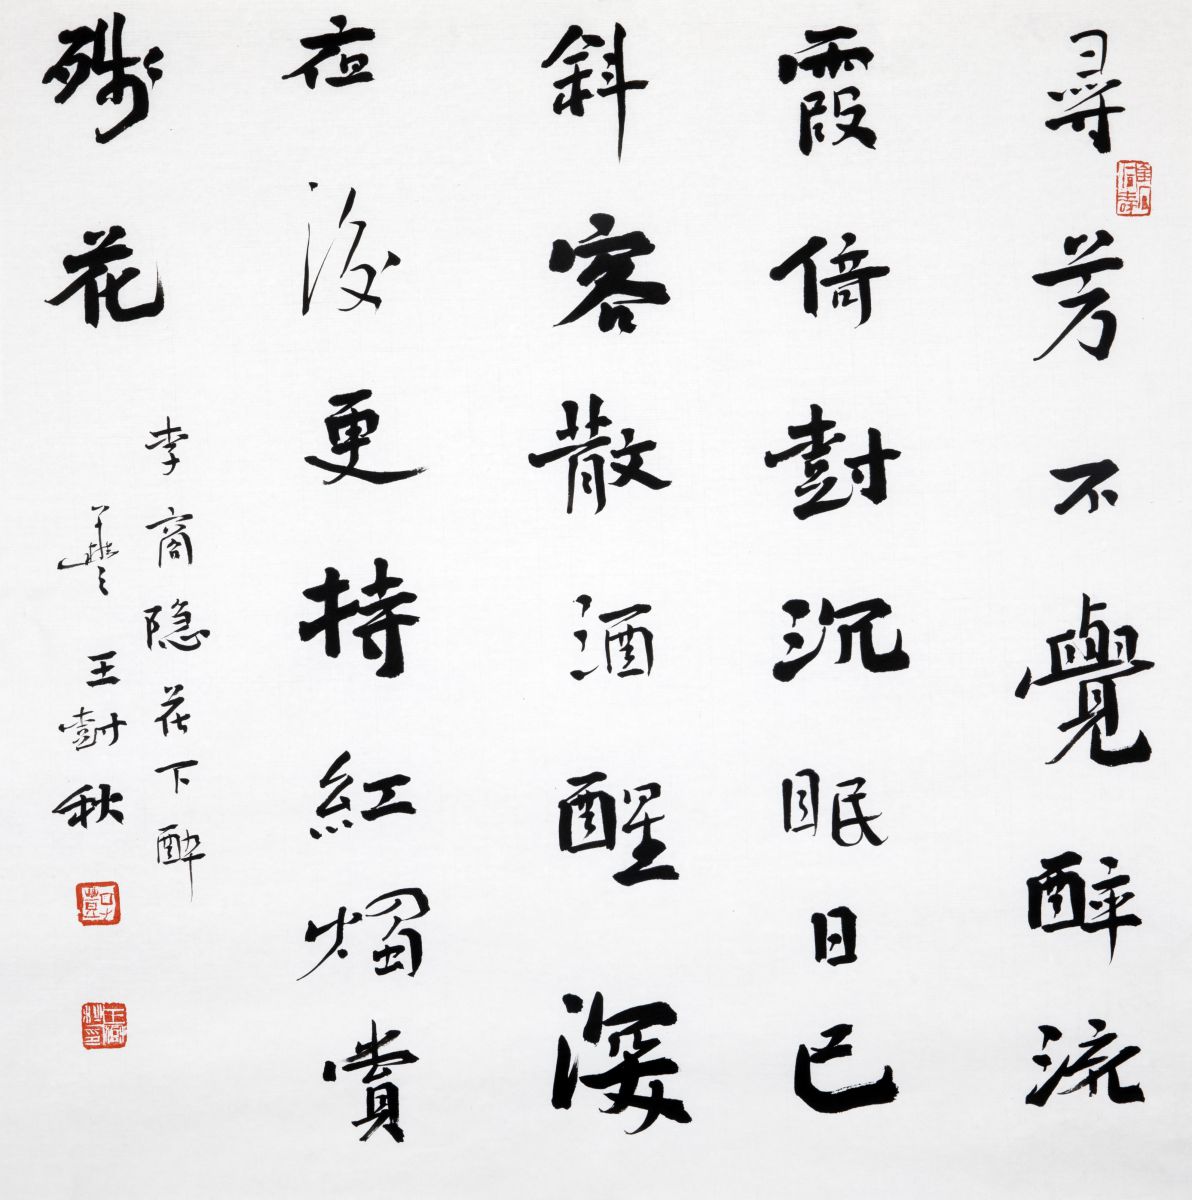 尋芳不覺醉流
霞倚尌沉眠日已
斜客散酒醒深
夜後更持紅燭賞
殘花
李商隐花下醉
王尌秋